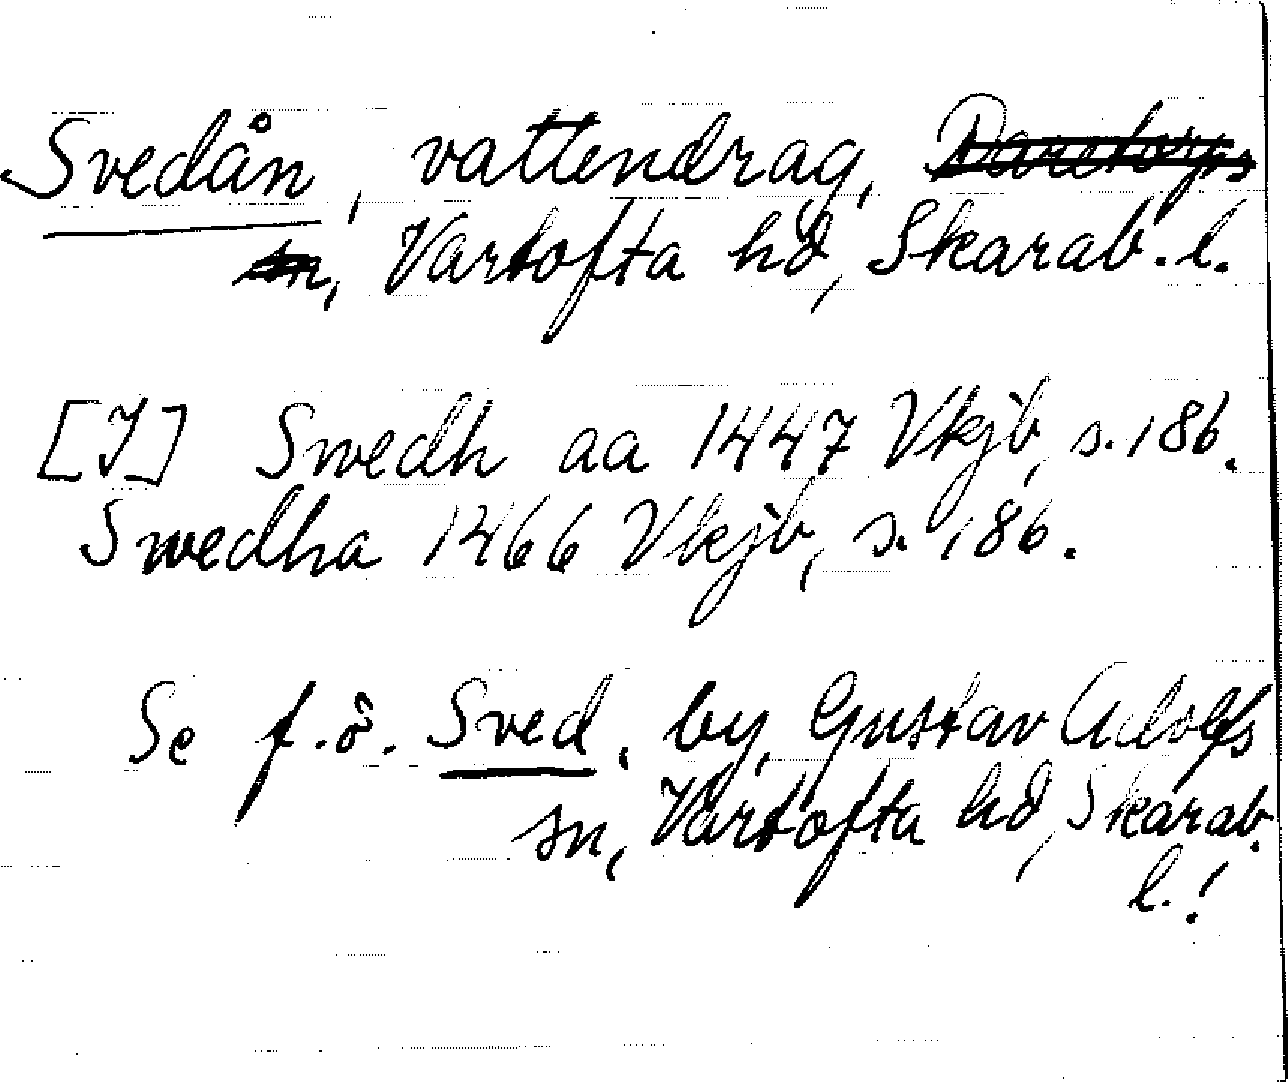 Svedån, vattendrag, Daretorps
sn, Vartofta hd, Skarab. l.
[I] Swedh aa 1447 Vkjb, s. 186.
Swedha 1466 Vkjb, s. 186.
Se f.ö. Sved, by, Gustav Adolfs
sn, Vartofta hd, Skarab.
l.!